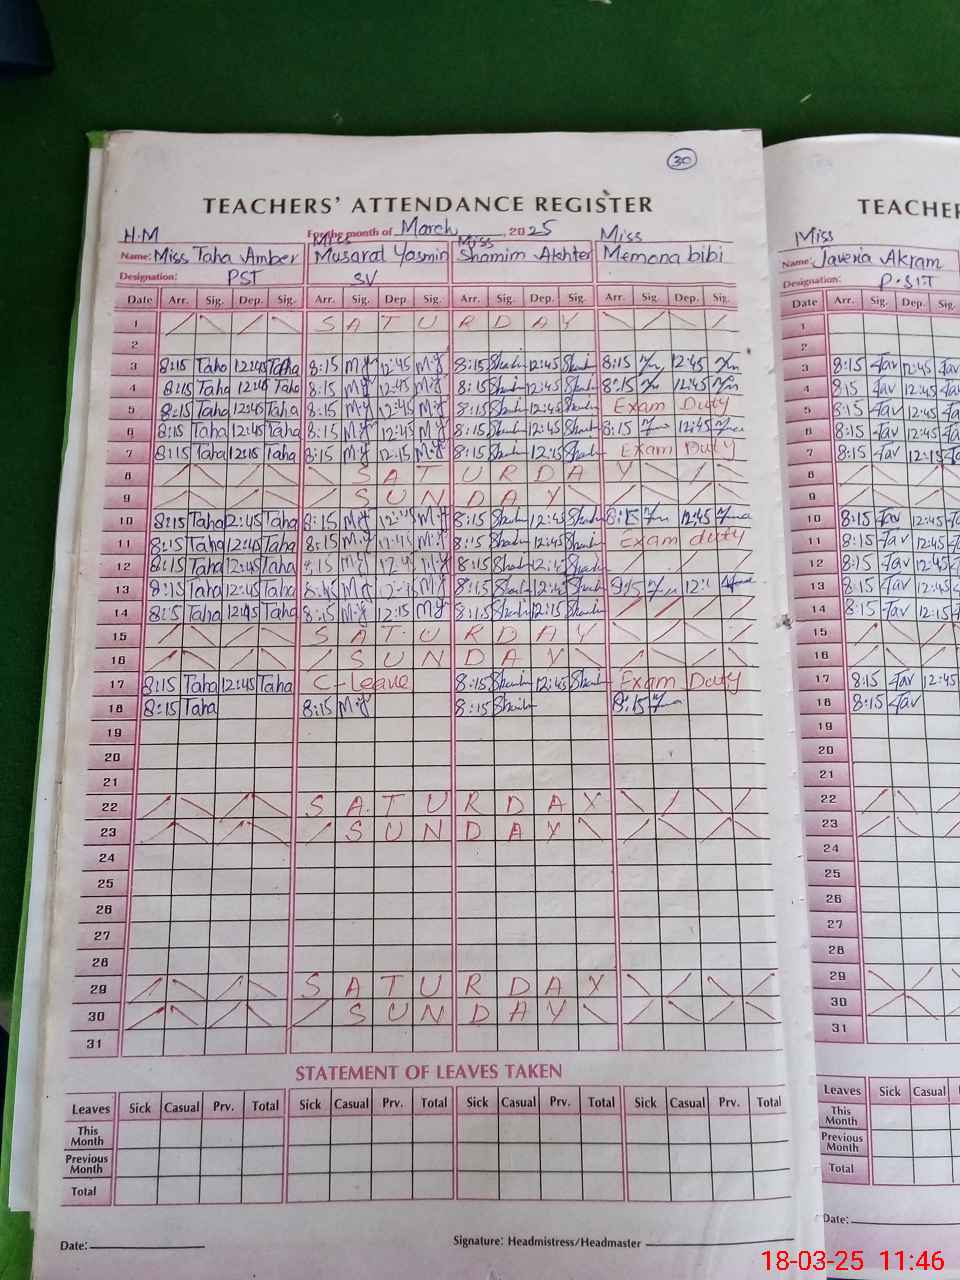 30
TEACHERS' ATTENDANCE REGISTER
H.M For the month of March, 2025
Name: Miss Taha Amber Miss Musarat Yasmin Miss Shamim Akhter Miss Memona bibi
Designation: PST SV
Date Arr. Sig. Dep. Sig. Arr. Sig. Dep. Sig. Arr. Sig. Dep. Sig. Arr. Sig. Dep. Sig.
1 SATURDAY
2
3 8:15 Taha 12:45 Taha 8:15 M.y 12:45 M.y 8:15 12:45 8:15 12:45
4 8:15 Taha 12:45 Taha 8:15 M.y 12:45 M.y 8:15 12:45 8:15 12:45
5 8:15 Taha 12:45 Taha 8:15 M.y 12:45 M.y 8:15 12:45 Exam Duty
6 8:15 Taha 12:45 Taha 8:15 M.y 12:45 M.y 8:15 12:45 8:15 12:45
7 8:15 Taha 12:15 Taha 8:15 M.y 12:15 M.y 8:15 12:15 Exam Duty
8 SATURDAY
9 SUNDAY
10 8:15 Taha 12:45 Taha 8:15 M.y M.y 8:15 12:45 8:15 12:45
11 8:15 Taha 12:45 Taha 8:15 M.y M.y 8:15 12:45 Exam duty
12 8:15 Taha 12:45 Taha M.y M.y 8:15 12:45
13 8:15 Taha 12:45 Taha M.y M.y 8:15 12:45
14 8:15 Taha Taha 8:15 M.y 12:15 M.y 8:15 12:15
15 SATURDAY
16 SUNDAY
17 8:15 Taha 12:45 Taha C-Leave 8:15 12:45 Exam Duty
18 8:15 Taha 8:15 M.y 8:15 8:15
19
20
21
22 SATURDAY
23 SUNDAY
24
25
26
27
28
29 SATURDAY
30 SUNDAY
31
STATEMENT OF LEAVES TAKEN
Leaves Sick Casual Prv. Total Sick Casual Prv. Total Sick Casual Prv. Total Sick Casual Prv. Total
This Month
Previous Month
Total
Date: Signature: Headmistress/Headmaster
TEACHER
Miss
Name: Javeria Akram
Designation: P.S.T
Date Arr. Sig. Dep. Sig.
1
2
3 8:15 Jav 12:45 Jav
4 8:15 Jav 12:45 Jav
5 8:15 Jav 12:45
6 8:15 Jav 12:45 Jav
7 8:15 Jav 12:15
8
9
10 8:15 Jav 12:45
11 8:15 Jav 12:45
12 8:15 Jav 12:45
13 8:15 Jav 12:45
14 8:15 Jav 12:15
15
16
17 8:15 Jav 12:45
18 8:15 Jav
19
20
21
22
23
24
25
26
27
28
29
30
31
Leaves Sick Casual
This Month
Previous Month
Total
Date:
18-03-25 11:46